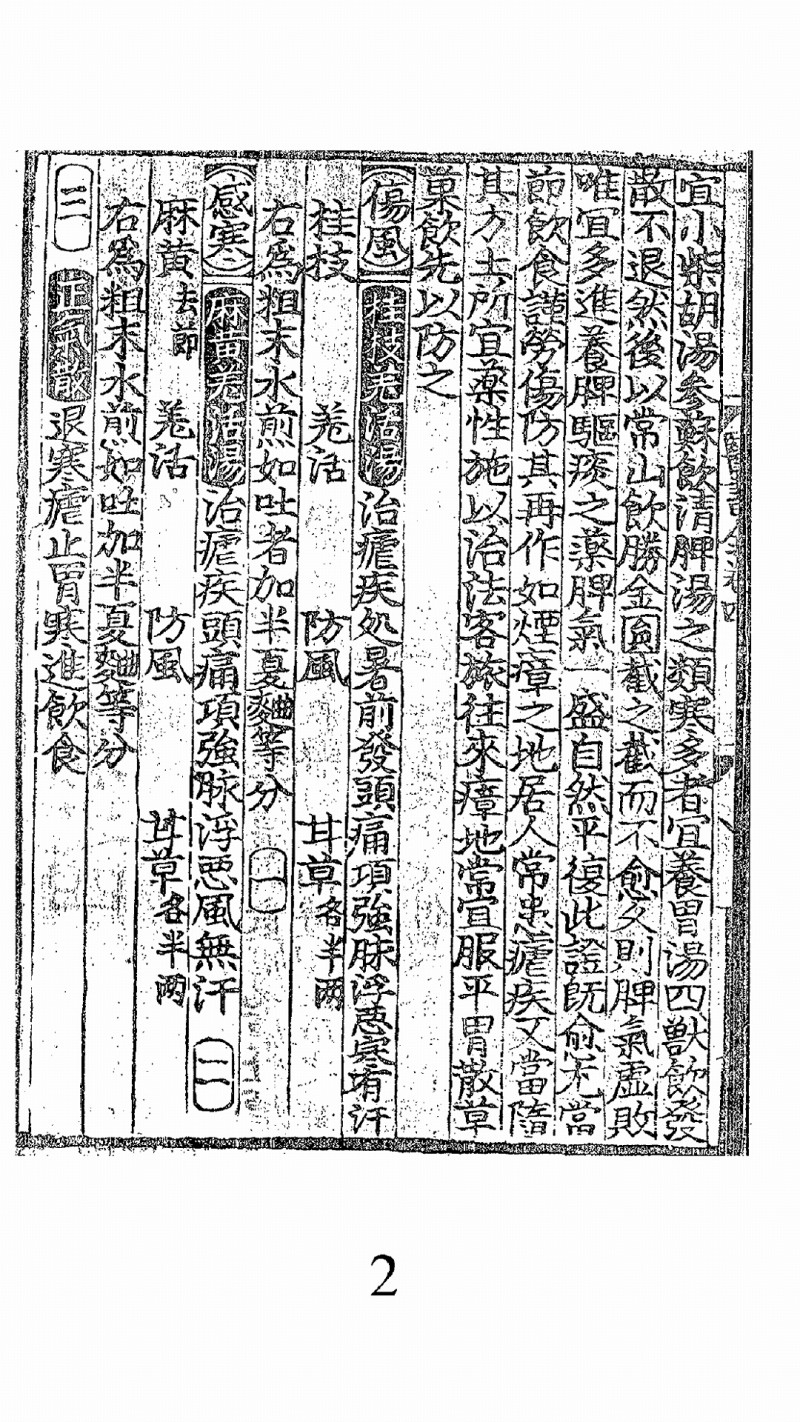 宜小柴胡湯參蘇飲清脾湯之類寒多者宜養胃湯四獸飲發
散不退然後以常山飲勝金圓截之截而不愈久則脾氣虛敗
唯宜多進養脾驅痰之藥脾氣一盛自然平復此證既愈尤當
節飲食謹勞傷防其再作如煙瘴之地居人常患瘧疾又當隨
其方土所宜藥性施以治法客旅往來瘴地常宜服平胃散草
菓飲先以防之
傷風 桂枝羌活湯 治瘧疾処暑前發頭痛項強脉浮惡寒有汗
桂枝 羌活 防風 甘草各半两
右為粗末水煎如吐者加半夏麯等分 一
感寒 麻黄羌活湯 治瘧疾頭痛項強脉浮惡風無汗 二
麻黄去節 羌活 防風 甘草各半两
右為粗末水煎如吐加半夏麯等分
三 正氣散 退寒瘧止胃寒進飲食
2